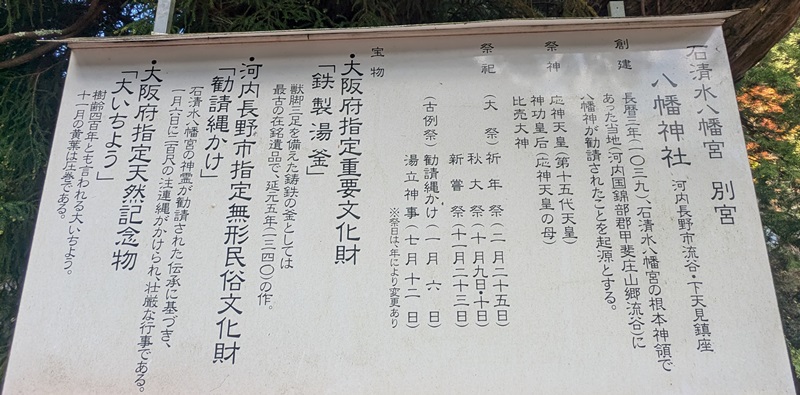 石清水八幡宮 別宮
八幡神社 河内長野市流谷・下天見鎮座
創建 長暦三年(一〇三九)、石清水八幡宮の根本神領で
あった当地(河内国錦部郡甲斐庄山郷流谷)に
八幡神が勧請されたことを起源とする。
祭神 応神天皇(第十五代天皇)
神功皇后(応神天皇の母)
比売大神
祭祀 (大祭)祈年祭(二月二十五日)
秋大祭(十月九日・十日)
新嘗祭(十一月二十三日)
(古例祭)勧請縄かけ(一月六日)
湯立神事(七月十二日)
※祭日は、年により変更あり
宝物
・大阪府指定重要文化財
「鉄製湯釜」
獣脚三足を備えた鋳鉄の釜としては
最古の在銘遺品で、延元五年(一三四〇)の作。
・河内長野市指定無形民俗文化財
「勧請縄かけ」
石清水八幡宮の神霊が勧請された伝承に基づき、
一月六日に二百尺の注連縄がかけられ、壮厳な行事である。
・大阪府指定天然記念物
「大いちょう」
樹齢四百年とも言われる大いちょう。
十一月の黄葉は圧巻である。